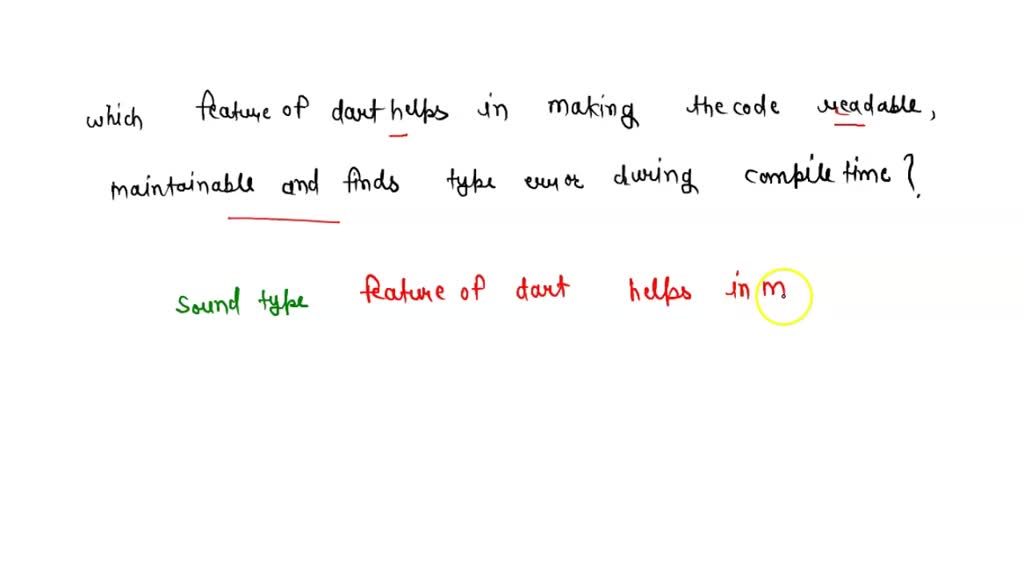 which feature of dart helps in making the code readable,
maintainable and finds type error during compile time?
sound type feature of dart helps in m